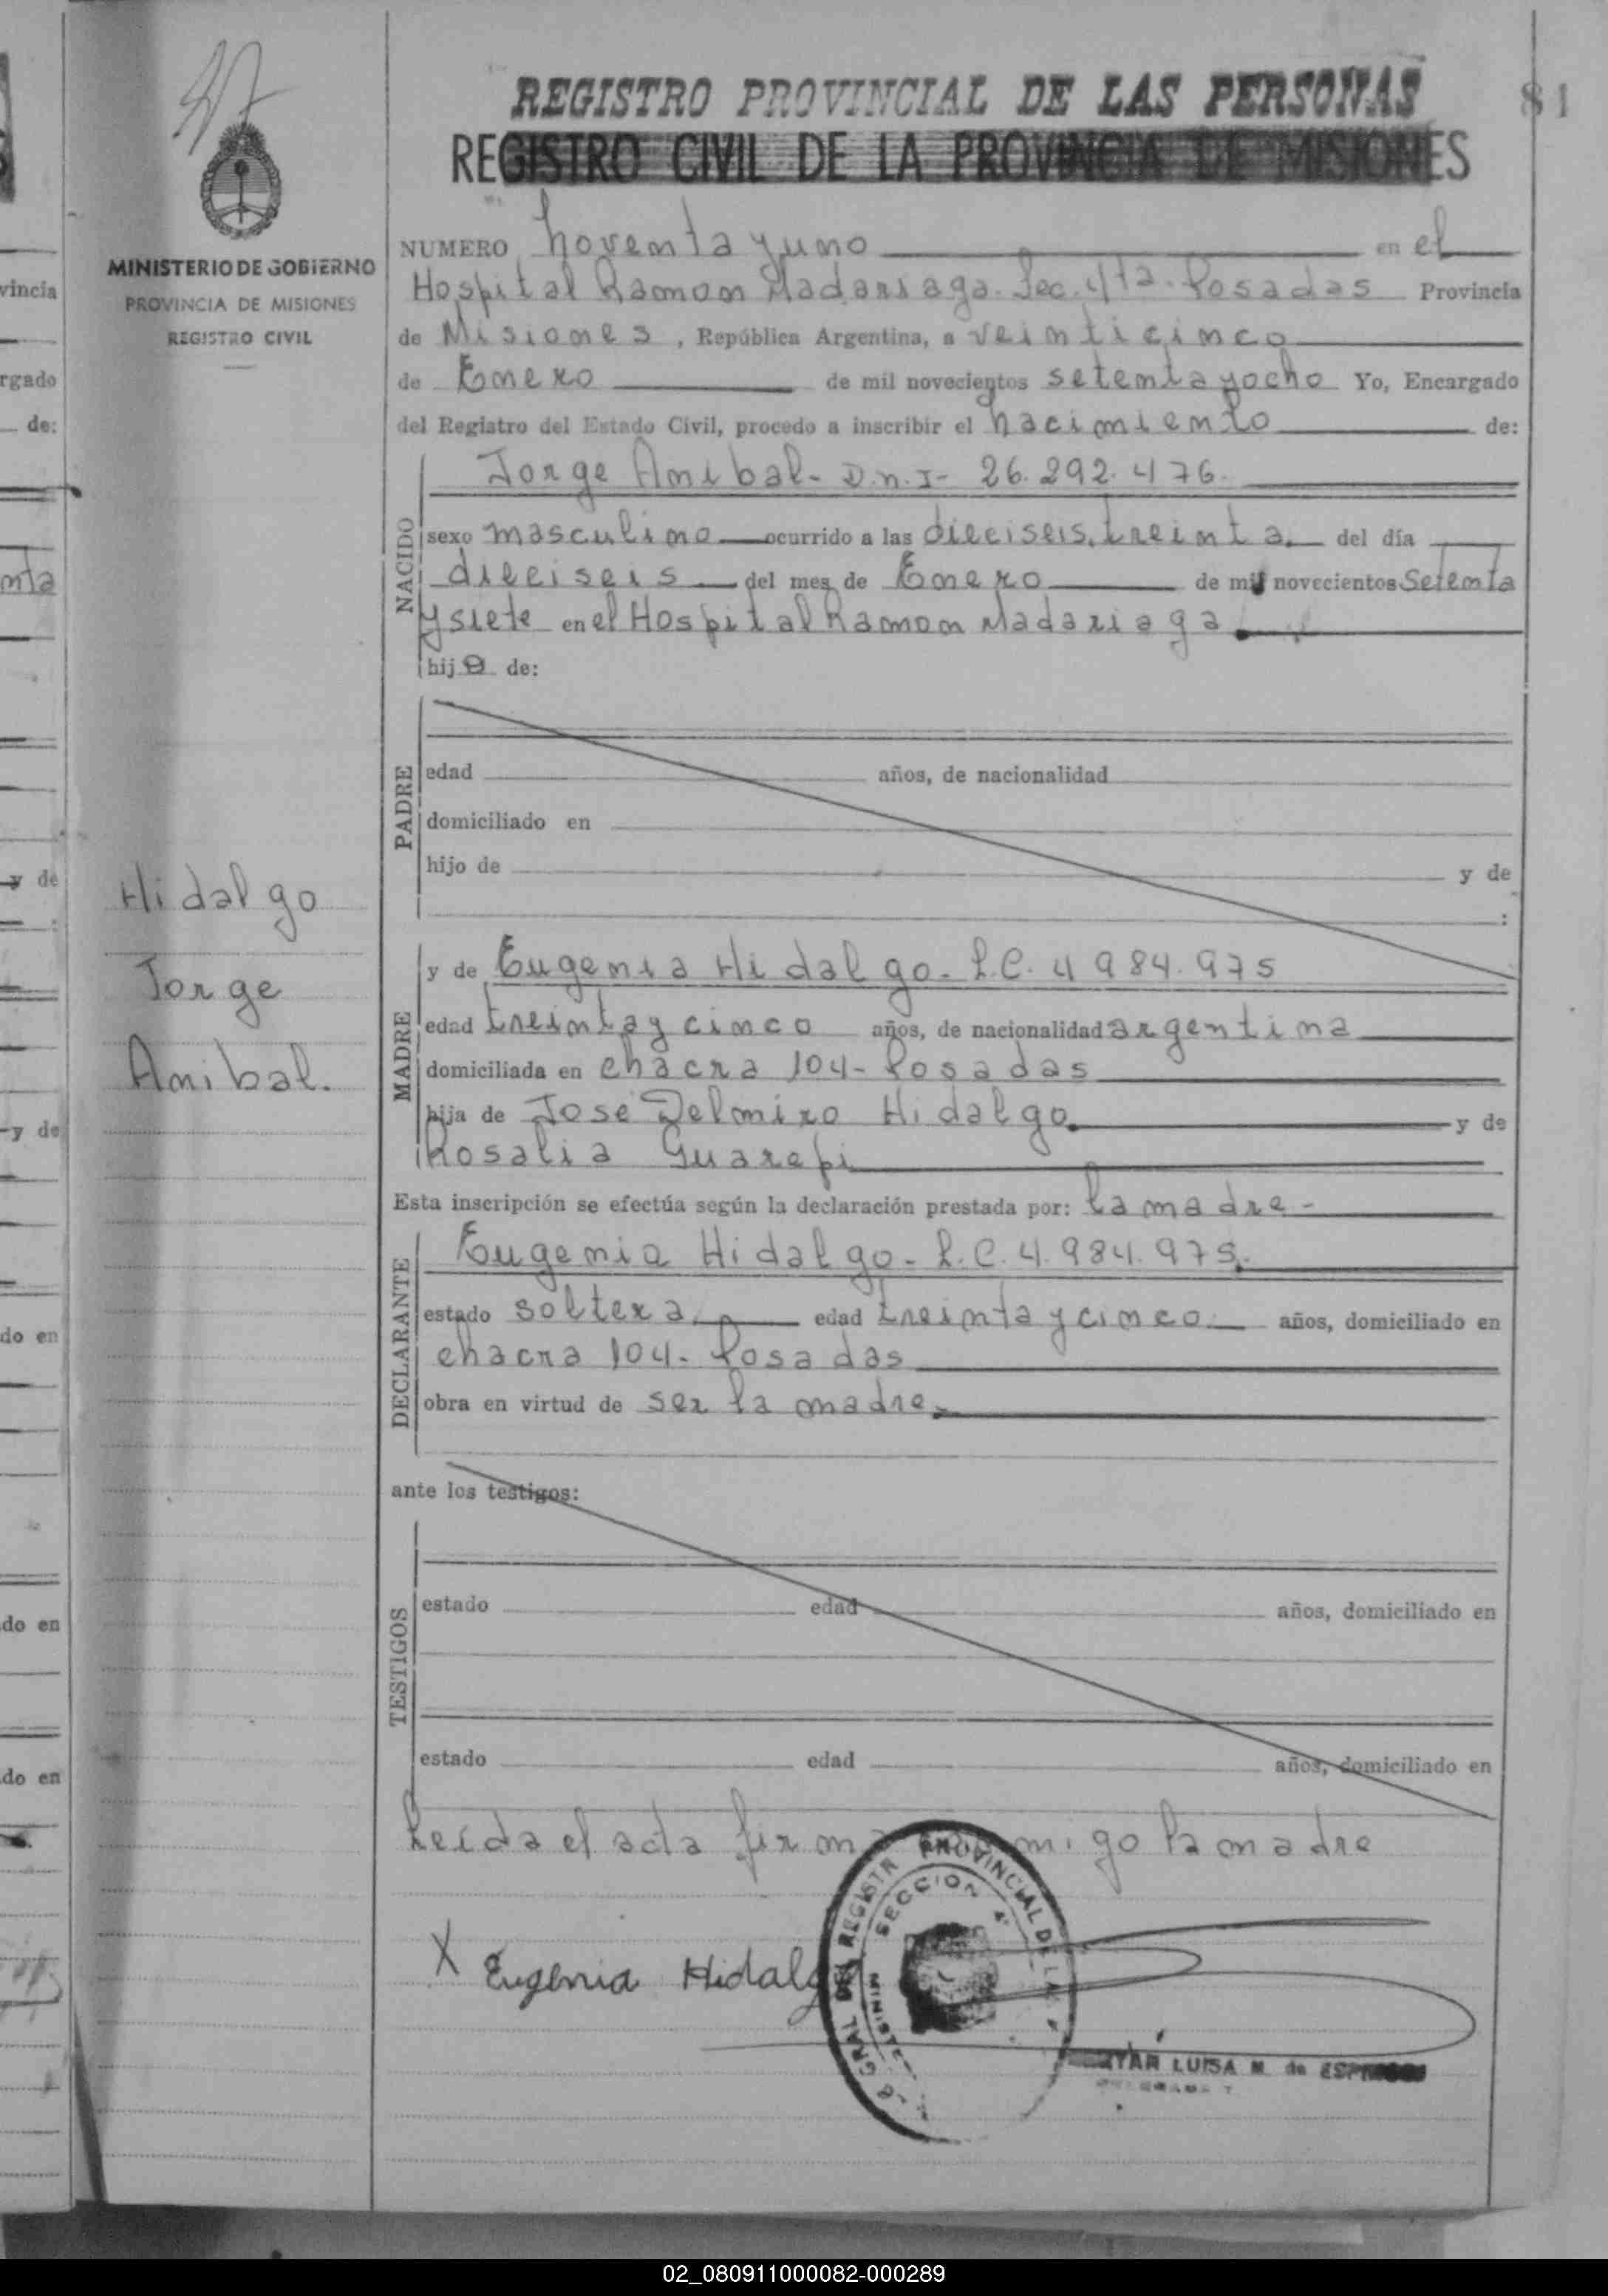 REGISTRO PROVINCIAL DE LAS PERSONAS
81
REGISTRO CIVIL DE LA PROVINCIA DE MISIONES
MINISTERIO DE GOBIERNO
PROVINCIA DE MISIONES
REGISTRO CIVIL
NUMERO noventa y uno en el
Hospital Ramon Madariaga. Sec. 4ta. Posadas Provincia
de Misiones, República Argentina, a veinticinco
de Enero de mil novecientos setenta y ocho Yo, Encargado
del Registro del Estado Civil, procedo a inscribir el nacimiento de:
Jorge Anibal - D.n.I - 26.292.476.
NACIDO
sexo masculino ocurrido a las dieciseis, treinta. del día
dieciseis del mes de Enero de mil novecientos setenta
y siete en el Hospital Ramon Madariaga.
hijo de:
PADRE
edad años, de nacionalidad
domiciliado en
hijo de y de
:
Hidalgo
Jorge
Anibal.
MADRE
y de Eugenia Hidalgo - L.C. 4984.975
edad treinta y cinco años, de nacionalidad argentina
domiciliada en chacra 104 - Posadas
hija de Jose Delmiro Hidalgo. y de
Rosalia Guarepi
Esta inscripción se efectúa según la declaración prestada por: la madre -
DECLARANTE
Eugenia Hidalgo - L.C. 4.984.975.
estado soltera. edad treinta y cinco. años, domiciliado en
chacra 104 - Posadas
obra en virtud de ser la madre.
ante los testigos:
TESTIGOS
estado edad años, domiciliado en
estado edad años, domiciliado en
Leida el acta firma conmigo la madre
X Eugenia Hidalgo
GRAL DEL REGISTR PROVINCIAL DE LAS
SECCION 4°
LUISA M. de
vincia
rgado
de:
nta
y de
y de
do en
do en
do en
02_080911000082-000289